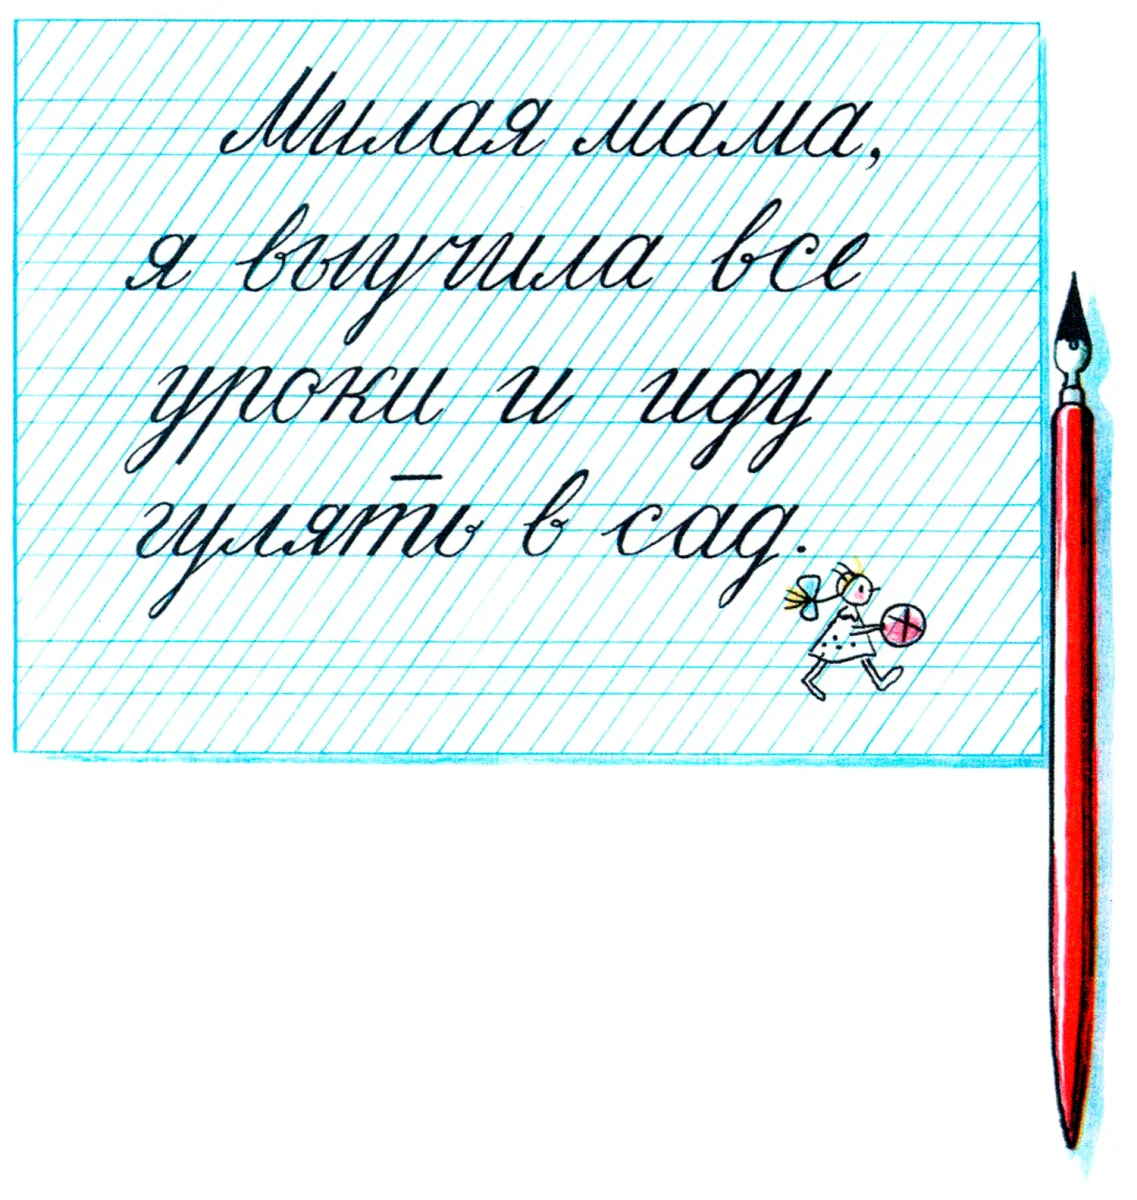 Милая мама,
я выучила все
уроки и иду
гулять в сад.